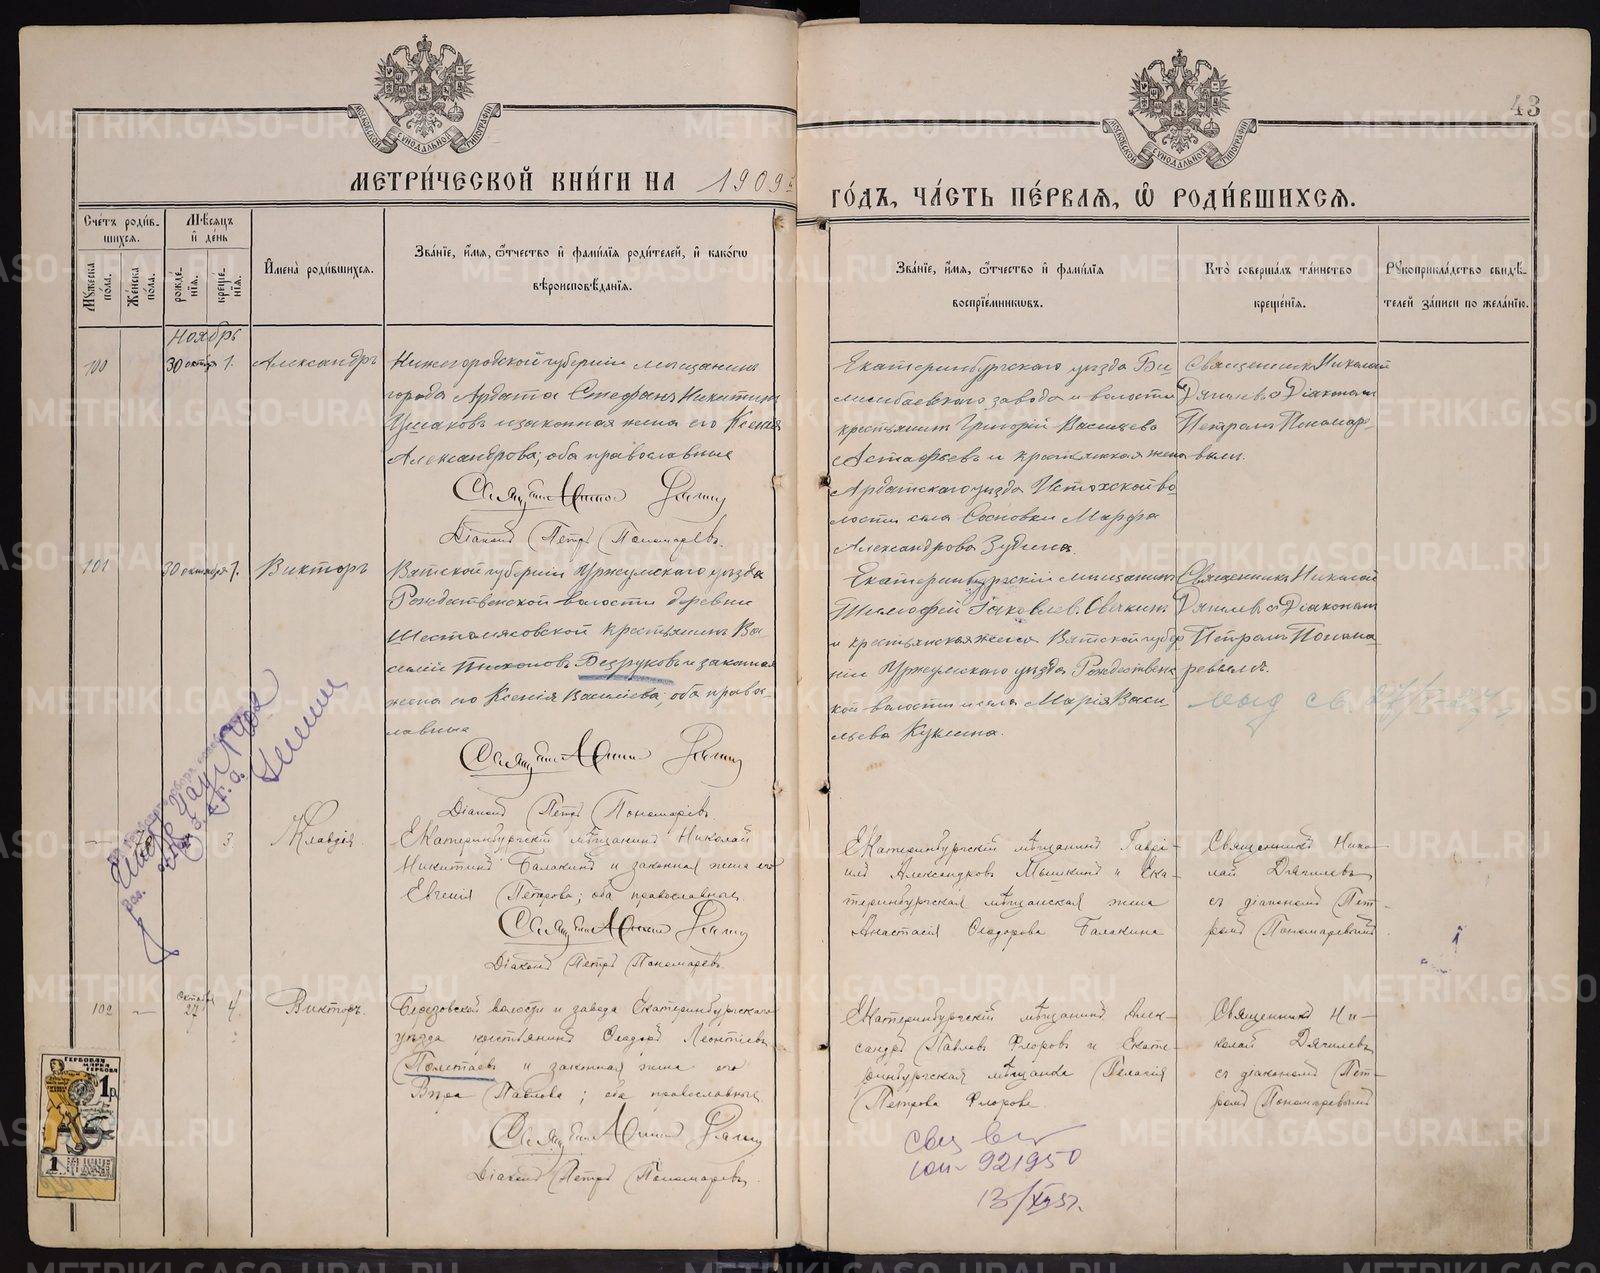 43
МЕТРИ́ЧЕСКОЙ КНИ́ГИ НА 1909
ГО́ДЪ, ЧА́СТЬ ПЕ́РВАЯ, Ѡ РОДИ́ВШИХСЯ.
МОСКОВСКОЙ СѴНОДАЛЬНОЙ ТИПОГРАФІИ
МОСКОВСКОЙ СѴНОДАЛЬНОЙ ТИПОГРАФІИ
Сче́тъ роди́в-
шихся.
Му́жеска по́ла.
Же́нска по́ла.
Мѣ́сяцъ
и́ де́нь
рожде́нїя.
креще́нїя.
И́мена̀ роди́вшихся.
Зва́нїе, и́мя, ѻ҆́тчество и́ фами́лїя роди́телей, и́ како́гѡ
вѣроисповѣ́данїя.
Зва́нїе, и́мя, ѻ҆́тчество и́ фами́лїя
воспрїе́мникѡвъ.
Кто̀ соверша́лъ та́инство
креще́нїя.
Рꙋкоприкла́дство свидѣ́-
телей за́писи по жела́нїю.
Ноябрь
100 30 октября 1. Александръ
Нижегородской губерніи мѣщанинъ
города Ардатова Стефанъ Никитинъ
Ушаковъ и законная жена его Ксенія
Александрова; оба православные
Діаконъ Петръ Пономаревъ.
Екатеринбургскаго уѣзда Би-
лимбаевскаго завода и волости
крестьянинъ Григорій Васильевъ
Астафьевъ и крестьянская жена
Ардатскаго уѣзда
лости села Сосновки Марфа
Александрова Зудина.
Священникъ Николай
Дягилевъ съ Діакономъ
Петромъ Пономаре-
вымъ.
101 30 октября 1. Викторъ
Вятской губерніи Уржумскаго уѣзда
Рождественской волости деревни
Шестоласовской крестьянинъ Ва-
силій Тихоновъ Безруковъ и законная
жена его Ксенія Василіева; оба право-
славные
Діаконъ Петръ Пономаревъ.
Екатеринбургскій мѣщанинъ
Тимофей Іаковлев. Овчкинъ
и крестьянская жена Вятской губер-
ніи Уржумскаго уѣзда Рождествен-
кой волости и села Марія Васи-
льева Куклина.
Священникъ Николай
Дягилевъ съ Діакономъ
Петромъ Понома-
ревымъ.
3 Клавдія
Екатеринбургскій мѣщанинъ Николай
Никитинъ Балакинъ и законная жена его
Евгенія Петрова; оба православные.
Діаконъ Петръ Пономаревъ.
Екатеринбургскій мѣщанинъ Гаврі-
илъ Александровъ Мышкинъ и Ека-
теринбургская мѣщанская жена
Анастасія Ѳеодорова Балакина
Священникъ Нико-
лай Дягилевъ
съ діакономъ Пет-
ромъ Пономаревымъ.
102 Октября 27 4. Викторъ.
Березовской волости и завода Екатеринбургскаго
уѣзда крестьянинъ Ѳеодоръ Леонтіевъ
Полетаевъ и законная жена его
Вѣра Павлова; оба православные
Діаконъ Петръ Пономаревъ.
Екатеринбургскій мѣщанинъ Алек-
сандръ Павловъ Флоровъ и Екате-
ринбургская мѣщанка Пелагія
Петрова Флорова.
Священникъ Ни-
колай Дягилевъ
съ діакономъ Пет-
ромъ Пономаревымъ
921950
ГЕРБОВАЯ МАРКА
1р
1
METRIKI.GASO-URAL.RU